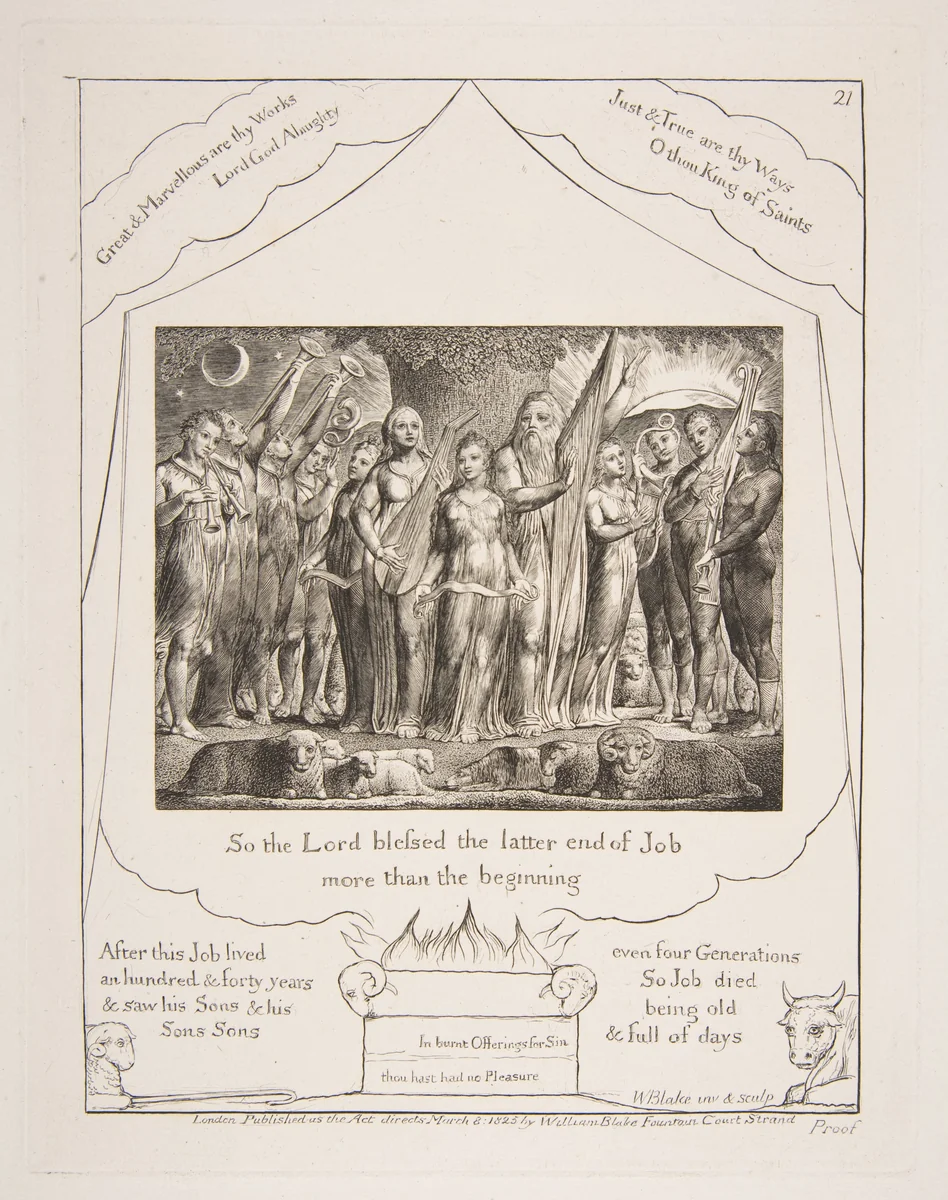 21
Great & Marvellous are thy Works
Lord God Almighty
Just & True are thy Ways
O thou King of Saints
So the Lord bleſsed the latter end of Job
more than the beginning
After this Job lived
an hundred & forty years
& saw his Sons & his
Sons Sons
even four Generations
So Job died
being old
& full of days
In burnt Offerings for Sin
thou hast had no Pleasure
WBlake inv & sculp
London Published as the Act directs March 8: 1825 by William Blake Fountain Court Strand
Proof